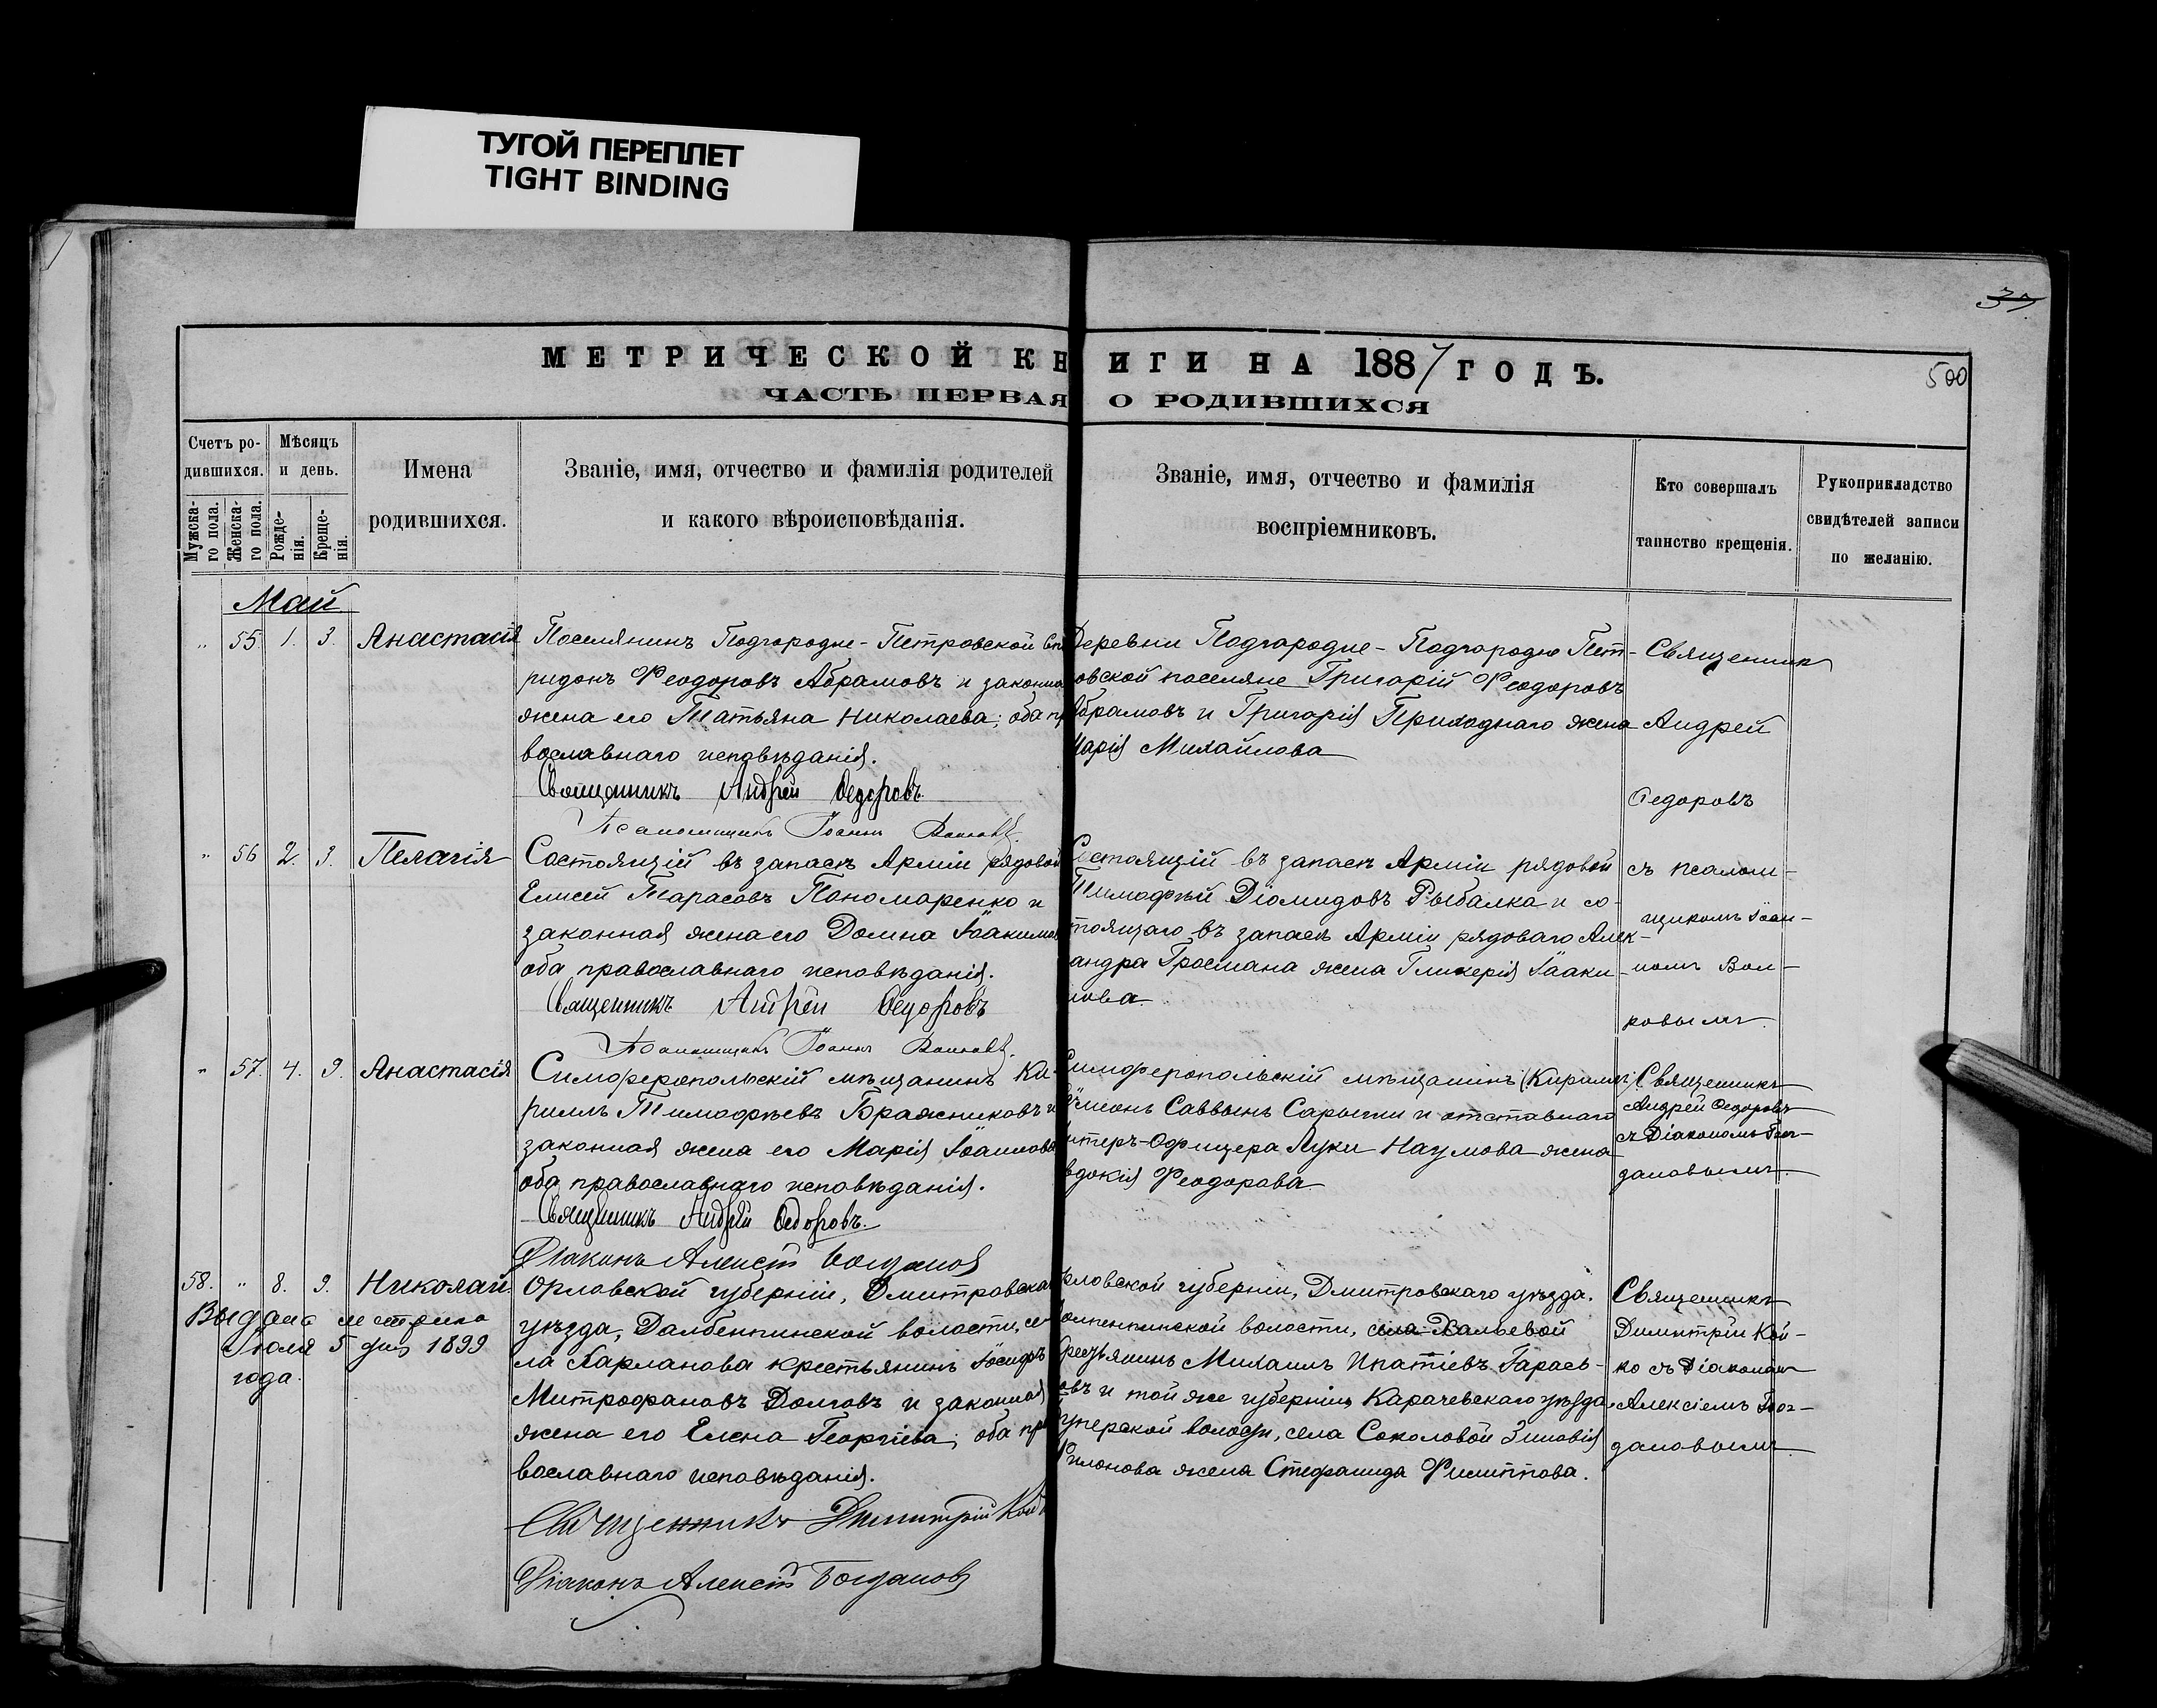 ТУГОЙ ПЕРЕПЛЕТ
TIGHT BINDING
37
500
МЕТРИЧЕСКОЙ КНИГИ НА 1887 ГОДЪ.
ЧАСТЬ ПЕРВАЯ О РОДИВШИХСЯ
Счетъ ро-
дившихся.
Мужска-
го пола.
Женска-
го пола.
Мѣсяцъ
и день.
Рожде-
нія.
Креще-
нія.
Имена
родившихся.
Званіе, имя, отчество и фамилія родителей
и какого вѣроисповѣданія.
Званіе, имя, отчество и фамилія
воспріемниковъ.
Кто совершалъ
таинство крещенія.
Рукоприкладство
свидѣтелей записи
по желанію.
Май
" 55. 1. 3. Анастасія
Поселянинъ Подгородне-Петровской Спи
ридонъ Ѳеодоровъ Абрамовъ и законна
жена его Татьяна Николаева; оба пр
вославнаго исповѣданія.
Священникъ Андрей Ѳедоровъ.
Псаломщикъ Іоаннъ Волковъ.
Деревни Подгородне-Подгородно Пет-
овской поселяне Григорій Ѳеодоровъ
Абрамовъ и Григорія Приходнаго жена
Марія Михайлова
Священник
Андрей
Ѳедоровъ
" 56 2. 3. Пелагія
Состоящій въ запасѣ Арміи рядовой
Елисей Тарасовъ Пономаренко и
законная жена его Домна Іоакимов
оба православнаго исповѣданія.
Священникъ Андрей Ѳедоровъ
Псаломщикъ Іоаннъ Волковъ.
Состоящій въ запасѣ Арміи рядовой
Тимофѣй Діомидовъ Рыбалка и со-
тоящаго въ запасѣ Арміи рядоваго Алек-
андра Гросмана жена Гликерія Іоаки-
мова.
съ псалом-
щикомъ Іоан-
номъ Вол-
ковымъ.
" 57. 4. 9. Анастасія
Симферопольскій мѣщанинъ Ки-
риллъ Тимофѣевъ Бражниковъ и
законная жена его Марія Іоаннова
оба православнаго исповѣданія.
Священникъ Андрей Ѳедоровъ.
Діаконъ Алексѣй Богдановъ
Симферопольскій мѣщанинъ
Саввинъ и отставнаго
нтеръ-Офицера Луки Наумова жена
вдокія Ѳеодорова
Священникъ
Андрей Ѳедоровъ
съ Діакономъ Бог-
дановымъ.
58. " 8. 9. Николай.
Выдана метрика
Іюля 5 дня 1899
года.
Орловской губерніи, Дмитровска
уѣзда, Далбенкинской волости, се-
ла Харланова крестьянинъ Іосифъ
Митрофановъ Долговъ и законная
жена его Елена Георгіева; оба пр
вославнаго исповѣданія.
Священникъ Димитрій Кой
Діаконъ Алексѣй Богдановъ
рловской губерніи, Дмитровскаго уѣзда.
волости, села
рестьянинъ Михаилъ Ипатіевъ Гарась-
овъ и той же губерніи Карачевскаго уѣзда,
волости, села Соколовой Зиновія
Филонова жена Стефанида Филиппова.
Священникъ
Димитрій Кой-
ко съ Діаконом
Алексіемъ Бог-
дановымъ